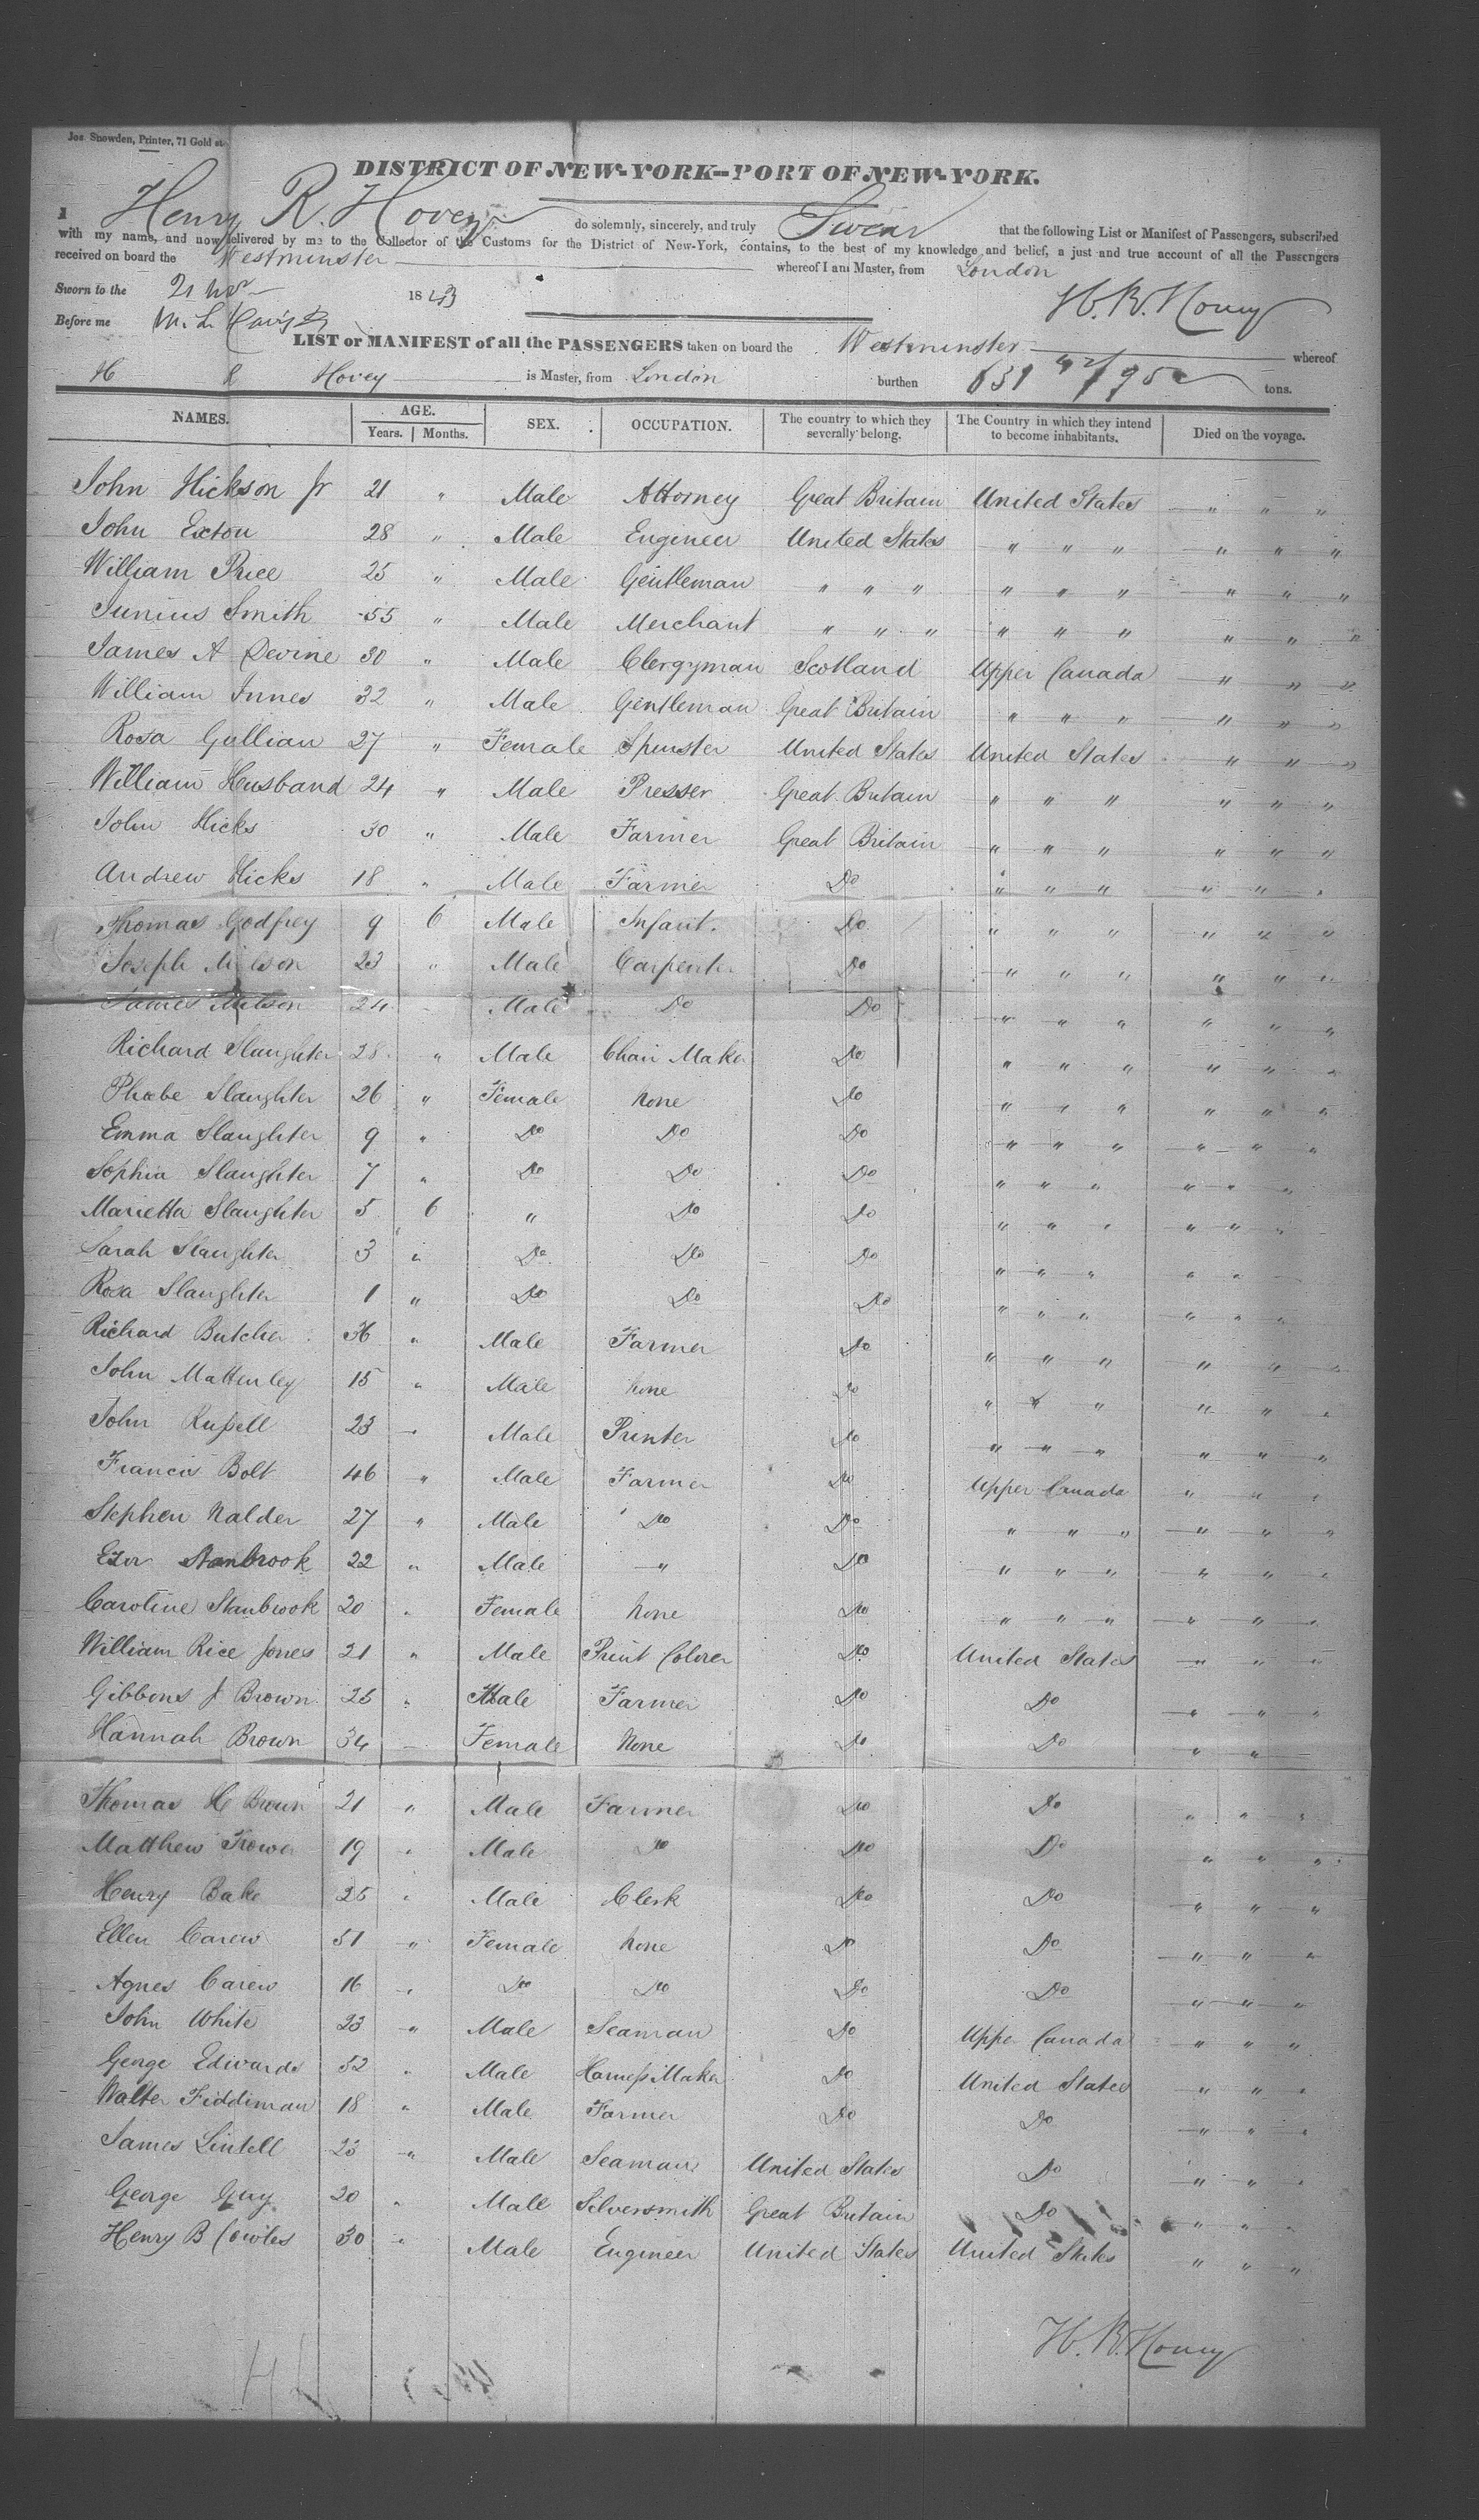 Jos Snowden, Printer, 71 Gold st
DISTRICT OF NEW-YORK--PORT OF NEW-YORK.
I Henry R. Hovey do solemnly, sincerely, and truly Swear that the following List or Manifest of Passengers, subscribed
with my name, and now delivered by me to the Collector of the Customs for the District of New-York, contains, to the best of my knowledge and belief, a just and true account of all the Passengers
received on board the Westminster whereof I am Master, from London
Sworn to the 21 Nov 1843
H. R. Hovey
Before me
LIST or MANIFEST of all the PASSENGERS taken on board the Westminster whereof
H R Hovey is Master, from London burthen 631 tons.
NAMES. AGE. Years. Months. SEX. OCCUPATION. The country to which they severally belong. The Country in which they intend to become inhabitants. Died on the voyage.
John Hickson Jr 21 " Male Attorney Great Britain United States " " "
John Exton 28 " Male Engineer United States " " " " " "
William Price 25 " Male Gentleman " " " " " " " " "
Junius Smith 55 " Male Merchant " " " " " " " " "
James A Devine 30 " Male Clergyman Scotland Upper Canada " " "
William Innes 32 " Male Gentleman Great Britain " " " " " "
Rosa Gullian 27 " Female Spinster United States United States " " "
William Husband 24 " Male Presser Great Britain " " " " " "
John Hicks 30 " Male Farmer Great Britain " " " " " "
Andrew Hicks 18 " Male Farmer Do " " " " " "
Thomas Godfrey 9 6 Male Infant. Do " " " " " "
Joseph Milson 23 " Male Carpenter Do " " " " " "
James Milson 24 Male Do Do " " " " " "
Richard Slaughter 28 " Male Chair Maker Do " " " " " "
Phoebe Slaughter 26 " Female none Do " " " " " "
Emma Slaughter 9 " Do Do Do " " " " " "
Sophia Slaughter 7 " Do Do Do " " " " " "
Marietta Slaughter 5 6 " Do Do " " " " " "
Sarah Slaughter 3 " Do Do Do " " " " "
Rosa Slaughter 1 " Do Do Do " " " " " "
Richard Butcher " Male Farmer Do " " " " " "
John Matterley 15 " Male none Do " " " " " "
John Russell 23 Male Printer Do " " " " " "
Francis Bolt 46 " Male Farmer Do Upper Canada " " "
Stephen Nalder 27 " Male Do Do " " " " " "
Ezer Stanbrook 22 " Male " Do " " " " " "
Caroline Stanbrook 20 " Female none Do " " " " " "
William Rice Jones 21 " Male Print Colorer Do United States " " "
Gibbons J Brown 25 " Male Farmer Do Do " " "
Hannah Brown 34 Female None Do Do " "
Thomas H Brown 21 " Male Farmer Do Do " " "
Matthew Trower 19 " Male Do Do Do " " "
Henry Bake 25 " Male Clerk Do Do " " "
Ellen Carew 51 " Female none Do Do " " "
Agnes Carew 16 " Do Do Do Do " " "
John White 23 " Male Seaman Do Upper Canada " " "
George Edwards 52 " Male Harness Maker Do United States " " "
Walter Fiddiman 18 " Male Farmer Do Do " " "
James Lintell 23 " Male Seaman United States Do " " "
George Guy 20 " Male Silversmith Great Britain Do " " "
Henry B Cowles 30 " Male Engineer United States United States " " "
H. R. Hovey